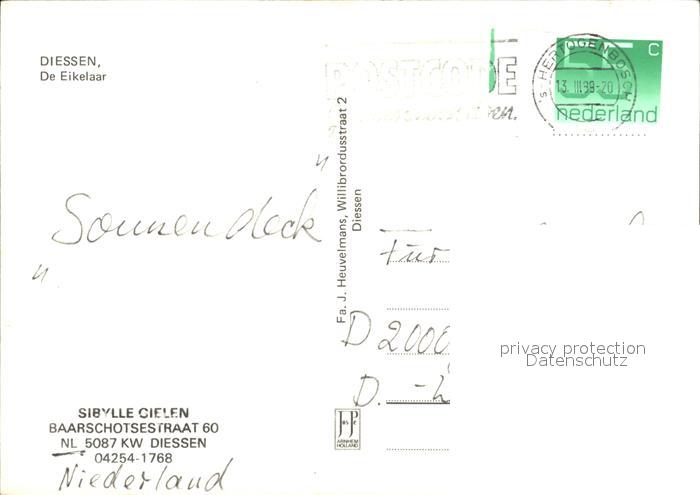 DIESSEN,
De Eikelaar
POSTCODE
's-HERTOGENBOSCH
13.III.89-20
C
nederland
Fa. J. Heuvelmans, Willibrordusstraat 2
Diessen
"Sonnendeck"
Für
D 2000
D.
privacy protection
Datenschutz
JosPe
ARNHEM
HOLLAND
SIBYLLE CIELEN
BAARSCHOTSESTRAAT 60
NL 5087 KW DIESSEN
04254-1768
Niederland